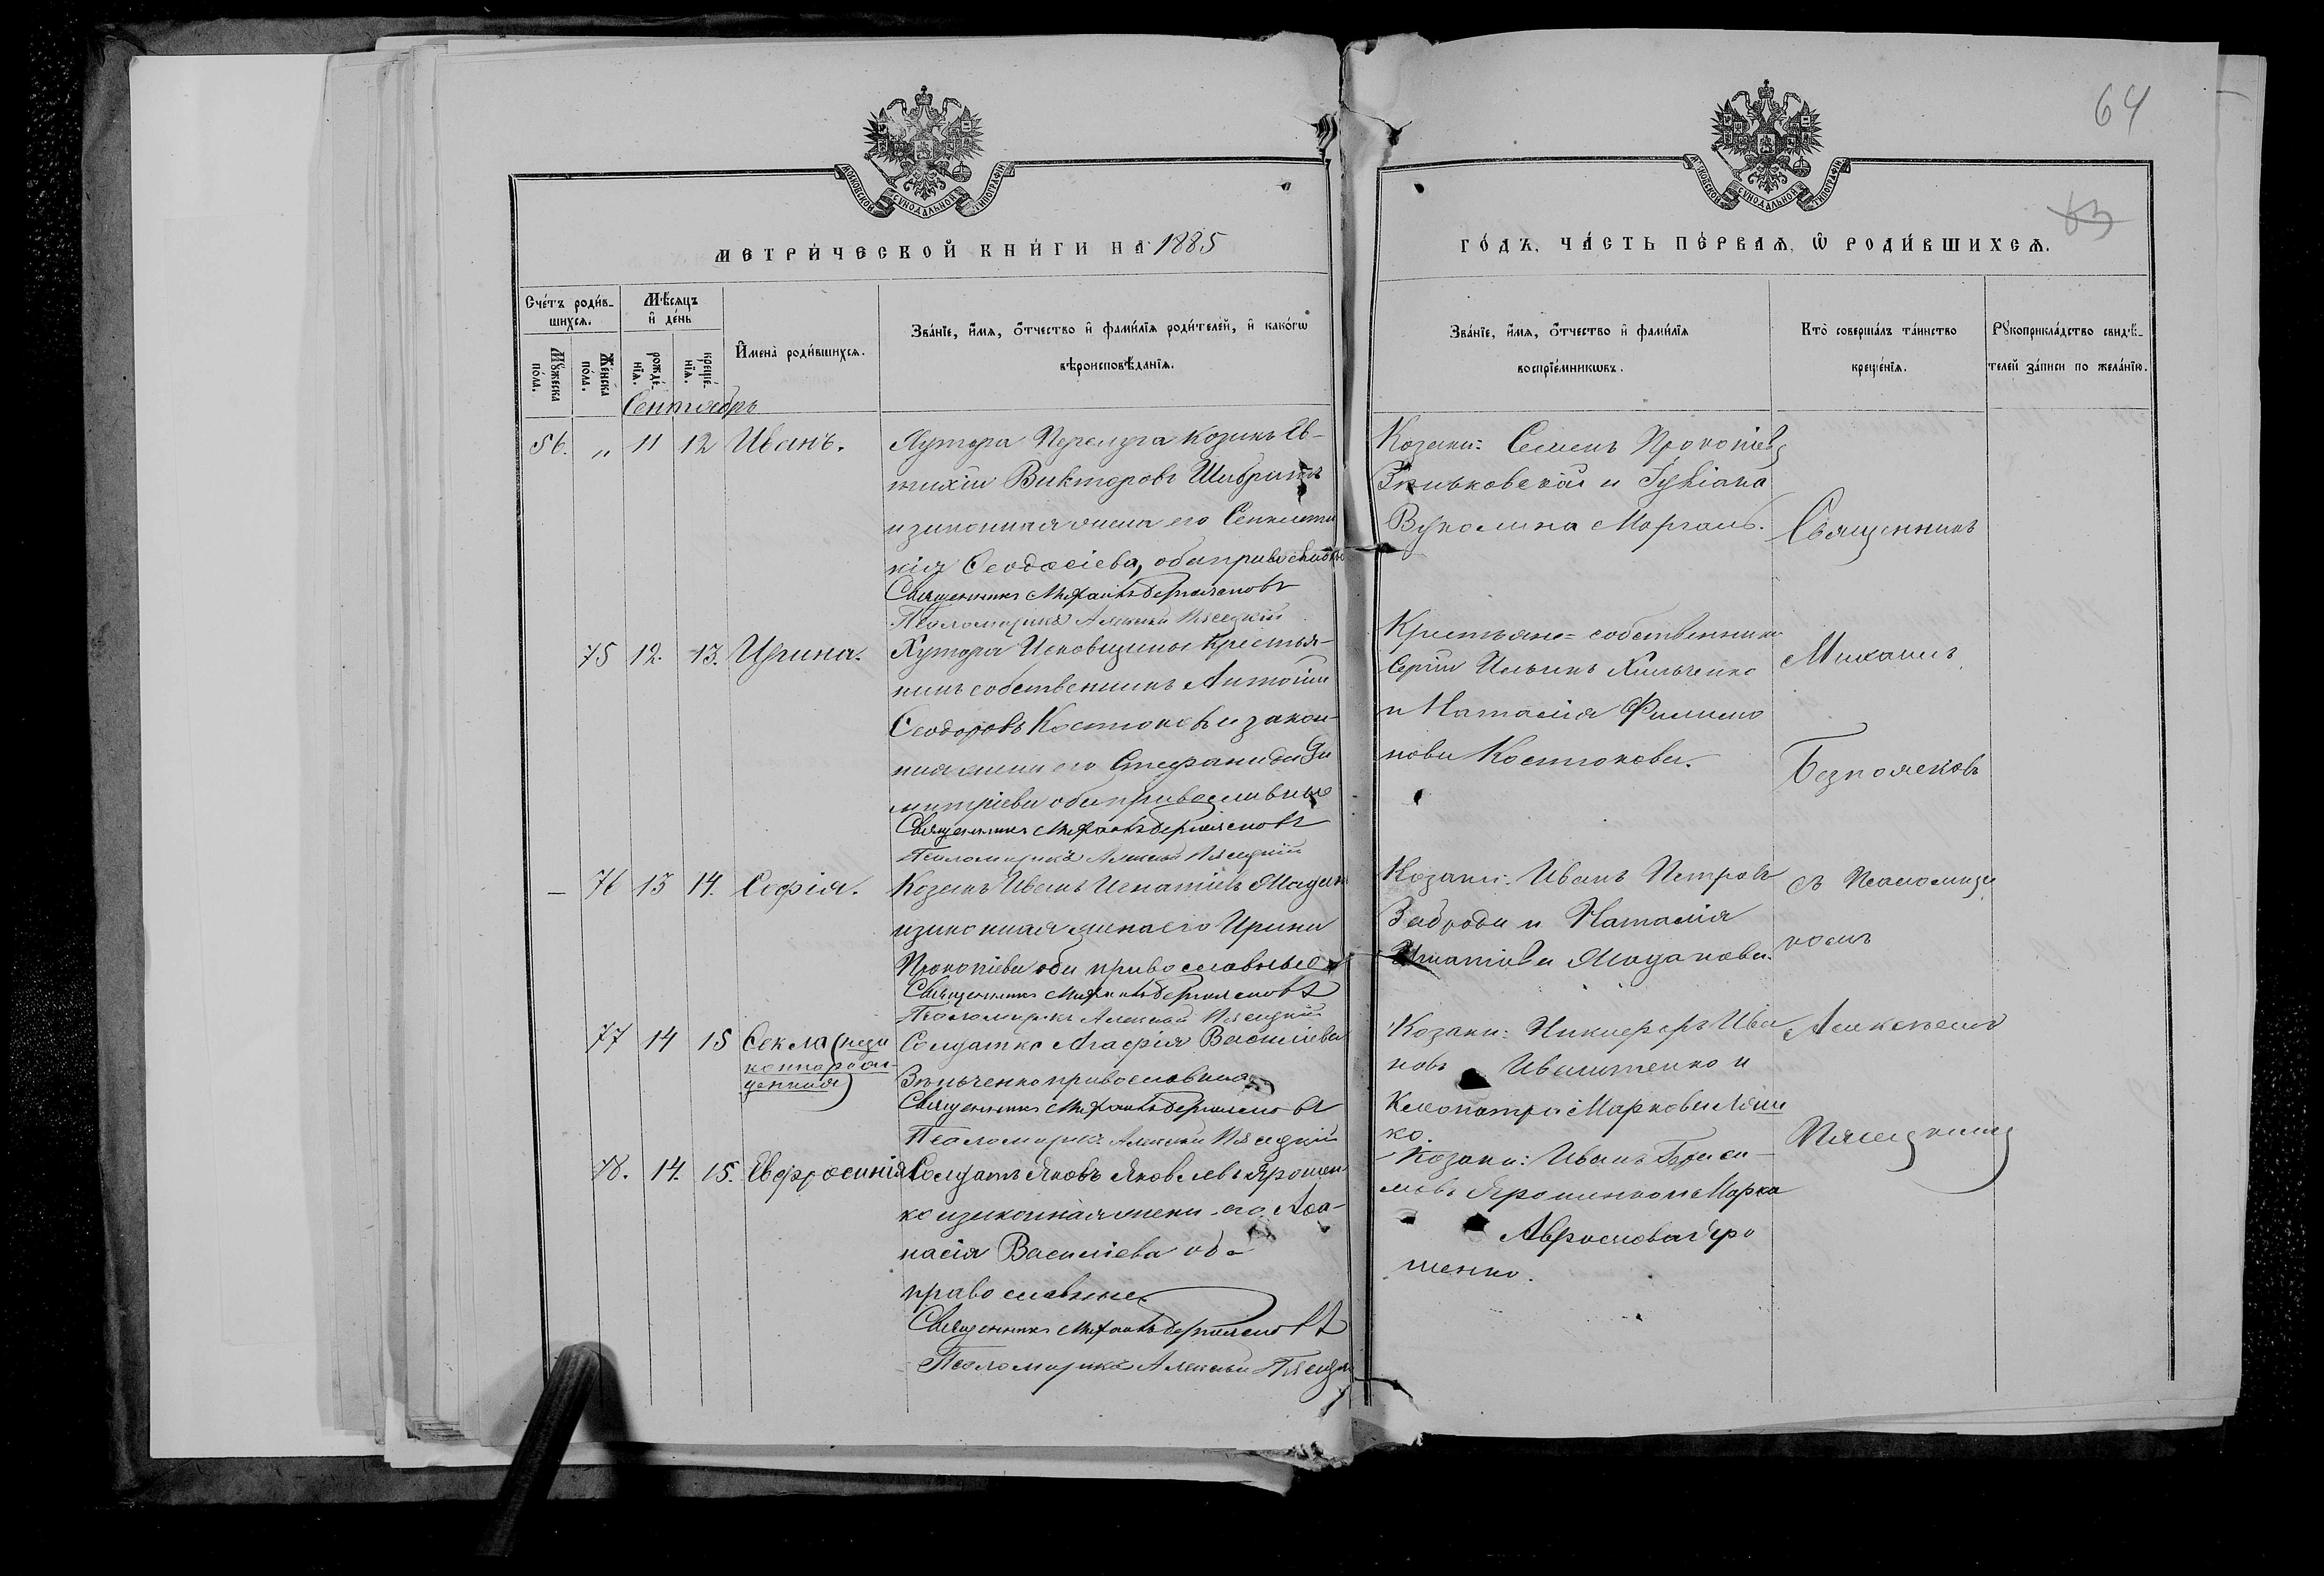 64
63
МОСКОВСКОЙ СѴНОДАЛЬНОЙ ТИПОГРАФІИ
МОСКОВСКОЙ СѴНОДАЛЬНОЙ ТИПОГРАФІИ
МЕТРИ́ЧЕСКОЙ КНИ́ГИ НА 1885
ГО́ДЪ, ЧА́СТЬ ПЕ́РВАѦ, Ѽ РОДИ́ВШИХСѦ.
Сче́тъ роди́в-
шихсѧ.
Мѣ́сѧцъ
и҆ де́нь
Мꙋ́жеска
по́ла.
Же́нска
по́ла.
рожде́-
нїѧ.
креще́-
нїѧ.
И҆мена̀ роди́вшихсѧ.
Зва́нїе, и҆́мѧ, ѻ҆́тчество и҆ фами́лїѧ роди́телей, и҆ како́гѡ
вѣроисповѣ́данїѧ.
Зва́нїе, и҆́мѧ, ѻ҆́тчество и҆ фами́лїѧ
воспрїе́мникѡвъ.
Кто̀ соверша́лъ та́инство
креще́нїѧ.
Рꙋкоприкла́дство свидѣ́-
телей за́писи по жела́нїю.
Сентябрь
56. " 11 12 Иванъ.
Хутора Перелуга козакъ Ев-
тихій Викторовъ
и законная жена его
кія Ѳеодосіева, оба православные
Священникъ Михаилъ Безпоясковъ
Псаломщикъ Алексѣй Пясецкій
Козаки: Семенъ Прокопіевъ
Зеньковскій и Іуліана
Вуколина Моргаль.
Священникъ
75 12. 13. Ирина.
Хутора Исковщины крестья-
нинъ собственникъ Антоній
Ѳеодоровъ Костюковъ и закон-
ная жена его Стефанида Ди
митріева оба православные
Священникъ Михаилъ Безпоясковъ
Псаломщикъ Алексѣй Пясецкій
Крестьяне=собственники
Сергій Ильинъ Хильченко
и Наталія Филимо
нова Костюкова.
Михаилъ
Безпоясковъ
— 76 13 14. Софія.
Козакъ Иванъ Игнатіевъ
и законная жена его Ирина
Прокопіева оба православные
Священникъ Михаилъ Безпоясковъ
Псаломщикъ Алексѣй Пясецкій
Козаки: Иванъ Петровъ
Заброда и Наталія
Игнатіева
съ Псаломщи
комъ
77 14 15 Ѳекла (неза
коннорож
денная)
Солдатка Агафія Василіева
Зѣньченко православная
Священникъ Михаилъ Безпоясковъ
Псаломщикъ Алексѣй Пясецкій
Козаки: Никифоръ Ива
новъ Иващенко и
Клеопатра Маркова Ляш
ко.
Алексѣемъ
Пясецкимъ
78. 14. 15. Евфросинія
Солдатъ Яковъ Яковлевъ Ярошен
ко и законная жена его Аѳа-
насія Василіева оба
православные.
Священникъ Михаилъ Безпоясковъ
Псаломщикъ Алексѣй Пясецкій
Козаки: Иванъ Гераси-
мовъ Ярошенко и Марѳа
Авросимова Яро
шенко.